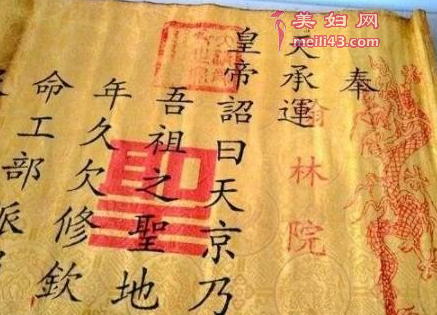 奉
天承運
皇帝詔曰天京乃
吾祖之聖地
年久欠修欽
命工部派
翰林院
美妇网
meili43.com